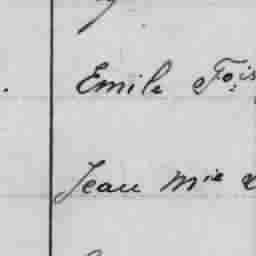 Emile Fois
Jean Mie